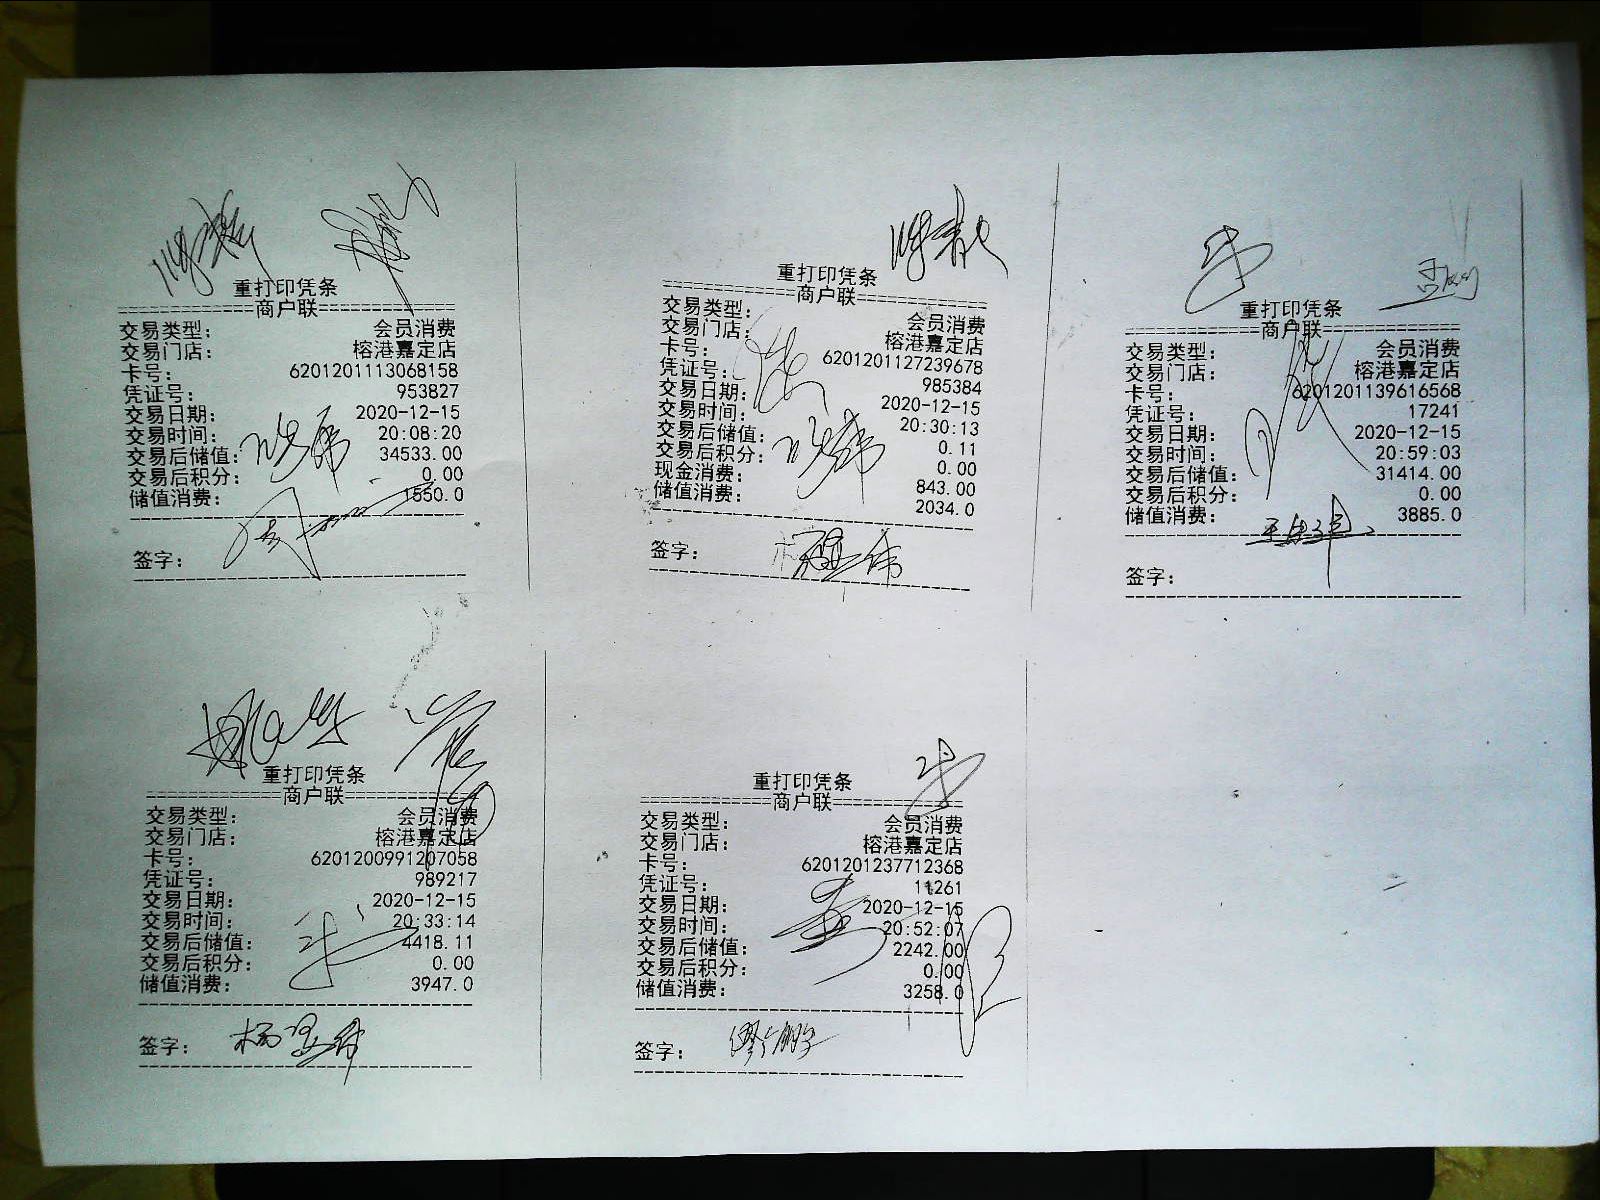 重打印凭条
商户联
交易类型: 会员消费
交易门店: 榕港嘉定店
卡号: 6201201113068158
凭证号: 953827
交易日期: 2020-12-15
交易时间: 20:08:20
交易后储值: 34533.00
交易后积分: 0.00
储值消费: 1550.0
签字:
重打印凭条
商户联
交易类型: 会员消费
交易门店: 榕港嘉定店
卡号: 6201201127239678
凭证号: 985384
交易日期: 2020-12-15
交易时间: 20:30:13
交易后储值: 0.11
交易后积分: 0.00
现金消费: 843.00
储值消费: 2034.0
签字:
重打印凭条
商户联
交易类型: 会员消费
交易门店: 榕港嘉定店
卡号: 6201201139616568
凭证号: 17241
交易日期: 2020-12-15
交易时间: 20:59:03
交易后储值: 31414.00
交易后积分: 0.00
储值消费: 3885.0
签字:
重打印凭条
商户联
交易类型: 会员消费
交易门店: 榕港嘉定店
卡号: 6201200991207058
凭证号: 989217
交易日期: 2020-12-15
交易时间: 20:33:14
交易后储值: 4418.11
交易后积分: 0.00
储值消费: 3947.0
签字:
重打印凭条
商户联
交易类型: 会员消费
交易门店: 榕港嘉定店
卡号: 6201201237712368
凭证号: 11261
交易日期: 2020-12-15
交易时间: 20:52:07
交易后储值: 2242.00
交易后积分: 0.00
储值消费: 3258.0
签字: